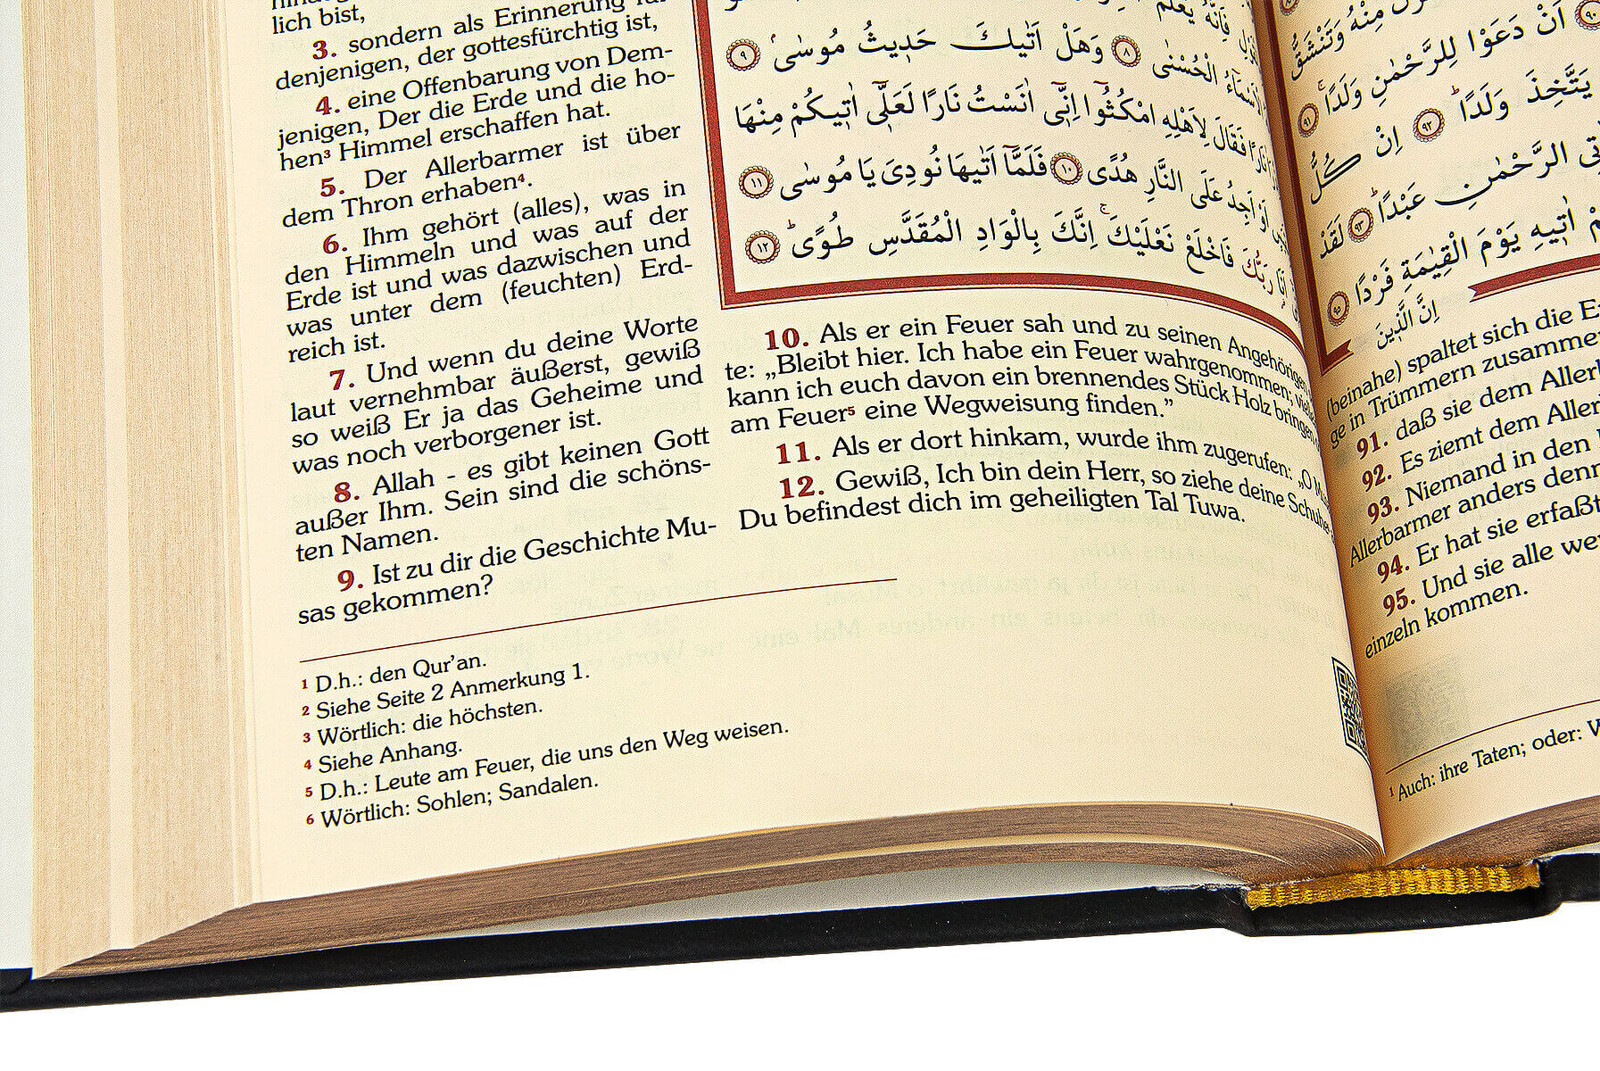 lich bist,
3. sondern als Erinnerung für
denjenigen, der gottesfürchtig ist,
4. eine Offenbarung von Dem-
jenigen, Der die Erde und die ho-
hen³ Himmel erschaffen hat.
5. Der Allerbarmer ist über
dem Thron erhaben⁴.
6. Ihm gehört (alles), was in
den Himmeln und was auf der
Erde ist und was dazwischen und
was unter dem (feuchten) Erd-
reich ist.
7. Und wenn du deine Worte
laut vernehmbar äußerst, gewiß
so weiß Er ja das Geheime und
was noch verborgener ist.
8. Allah - es gibt keinen Gott
außer Ihm. Sein sind die schöns-
ten Namen.
9. Ist zu dir die Geschichte Mu-
sas gekommen?
الْاَسْمَٓاءُ الْحُسْنٰى ﴿٨﴾ وَهَلْ اَتٰيكَ حَد۪يثُ مُوسٰىۢ ﴿٩﴾
نَارًا فَقَالَ لِاَهْلِهِ امْكُثُٓوا اِنّ۪ٓي اٰنَسْتُ نَارًا لَعَلّ۪ٓي اٰت۪يكُمْ مِنْهَا
اَوْ اَجِدُ عَلَى النَّارِ هُدًى ﴿١٠﴾ فَلَمَّٓا اَتٰيهَا نُودِيَ يَا مُوسٰى ﴿١١﴾
اَنَا۬ رَبُّكَ فَاخْلَعْ نَعْلَيْكَۚ اِنَّكَ بِالْوَادِ الْمُقَدَّسِ طُوًىۜ ﴿١٢﴾
10. Als er ein Feuer sah und zu seinen Angehörigen
te: „Bleibt hier. Ich habe ein Feuer wahrgenommen;
kann ich euch davon ein brennendes Stück Holz bringen
am Feuer⁵ eine Wegweisung finden.”
11. Als er dort hinkam, wurde ihm zugerufen: „O
12. Gewiß, Ich bin dein Herr, so ziehe deine Schuhe
Du befindest dich im geheiligten Tal Tuwa.
1 D.h.: den Qur’an.
2 Siehe Seite 2 Anmerkung 1.
3 Wörtlich: die höchsten.
4 Siehe Anhang.
5 D.h.: Leute am Feuer, die uns den Weg weisen.
6 Wörtlich: Sohlen; Sandalen.
مِنْهُ وَتَنْشَقُّ
اَنْ دَعَوْا لِلرَّحْمٰنِ وَلَدًاۚ ﴿٩١﴾
يَتَّخِذَ وَلَدًاۜ ﴿٩٢﴾ اِنْ كُلُّ
الرَّحْمٰنِ عَبْدًاۜ ﴿٩٣﴾ لَقَدْ
اٰت۪يهِ يَوْمَ الْقِيٰمَةِ فَرْدًا ﴿٩٥﴾
اِنَّ الَّذ۪ينَ
(beinahe) spaltet sich die
ge in Trümmern
91. daß sie dem
92. Es ziemt dem
93. Niemand in den
Allerbarmer anders denn
94. Er hat sie erfaßt
95. Und sie alle
einzeln kommen.
1 Auch: ihre Taten; oder: